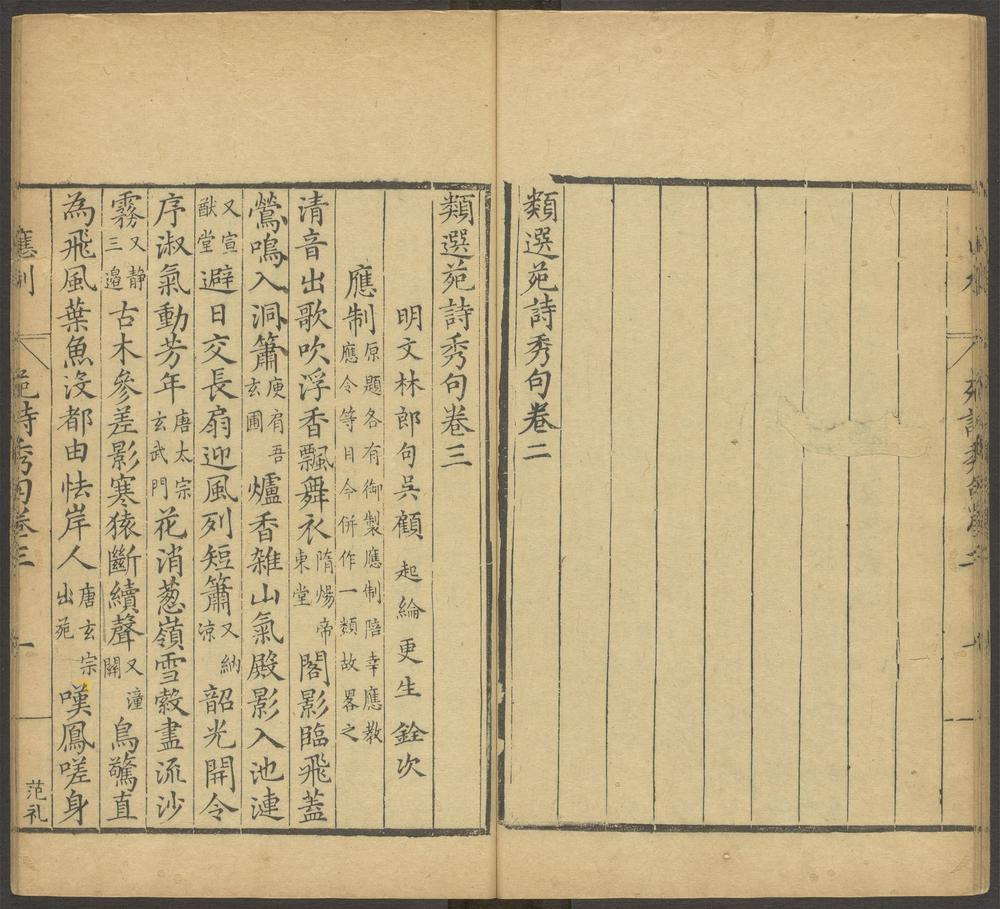 類選苑詩秀句卷二
類選苑詩秀句卷三
明文林郎句吳顧起綸更生銓次
應制原題各有御製應制陪幸應教應令等目今併作一類故畧之
清音出歌吹浮香飄舞衣隋煬帝東堂閣影臨飛蓋
鶯鳴入洞簫庾肩吾玄圃爐香雜山氣殿影入池漣
又宣猷堂避日交長扇迎風列短簫又納凉韶光開令
序淑氣動芳年唐太宗玄武門花消葱嶺雪縠盡流沙
霧又靜三邉古木參差影寒猿斷續聲又潼關鳥驚直
為飛風葉魚沒都由怯岸人唐玄宗出苑嘆鳳嗟身
應制
苑詩秀句卷三
一
范礼